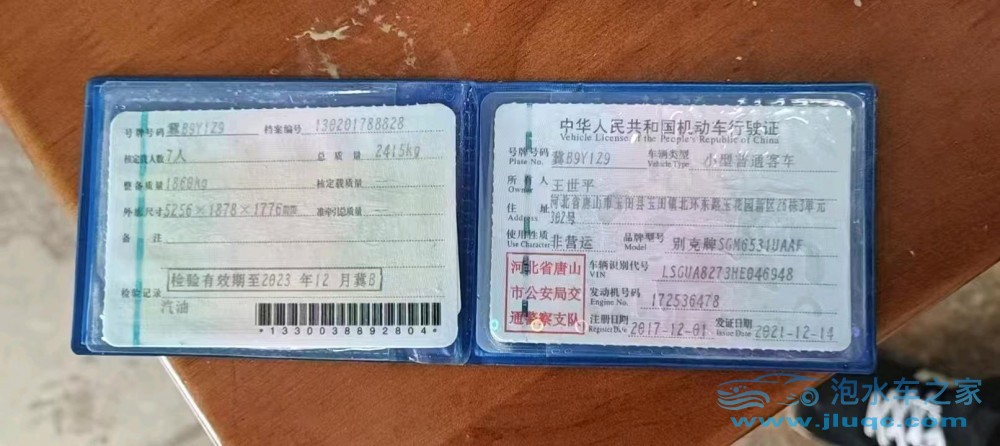 号牌号码 冀B9Y1Z9 档案编号 130201788828
核定载人数 7人 总质量 2415kg
整备质量 1860kg 核定载质量 --
外廓尺寸 5256×1878×1776mm 准牵引总质量 --
备注 --
检验有效期至2023年12月冀B
检验记录
汽油
*1330038892804*
中华人民共和国机动车行驶证
Vehicle License of the People's Republic of China
号牌号码 冀B9Y1Z9 车辆类型 小型普通客车
Plate No. Vehicle Type
所有人 王世平
Owner
住址 河北省唐山市玉田县玉田镇北环东路玉花园新区26栋3单元
Address 302号
使用性质 非营运 品牌型号 别克牌SGM6531UAAF
Use Character Model
河北省唐山
市公安局交
通警察支队
车辆识别代号 LSGUA8273HE046948
VIN
发动机号码 172536478
Engine No.
注册日期 2017-12-01 发证日期 2021-12-14
Register Date Issue Date
泡水车之家
www.jluqc.com